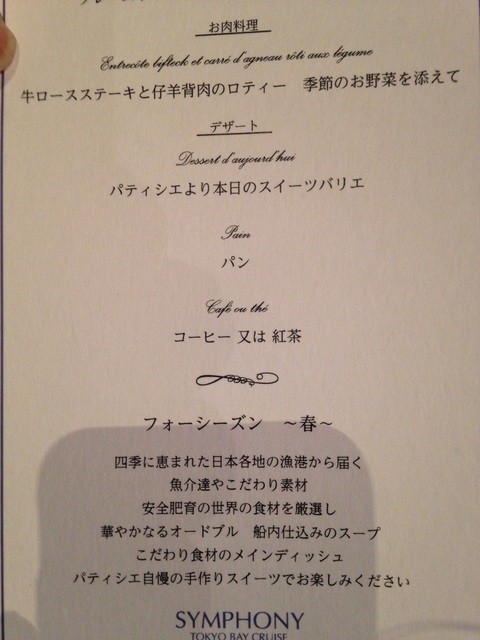 お肉料理
Entrecôte bifteck et carré d'agneau rôti aux légume
牛ロースステーキと仔羊背肉のロティー　季節のお野菜を添えて
デザート
Dessert d'aujourd'hui
パティシエより本日のスイーツバリエ
Pain
パン
Café ou thé
コーヒー 又は 紅茶
フォーシーズン　～春～
四季に恵まれた日本各地の漁港から届く
魚介達やこだわり素材
安全肥育の世界の食材を厳選し
華やかなるオードブル　船内仕込みのスープ
こだわり食材のメインディッシュ
パティシエ自慢の手作りスイーツでお楽しみください
SYMPHONY
TOKYO BAY CRUISE